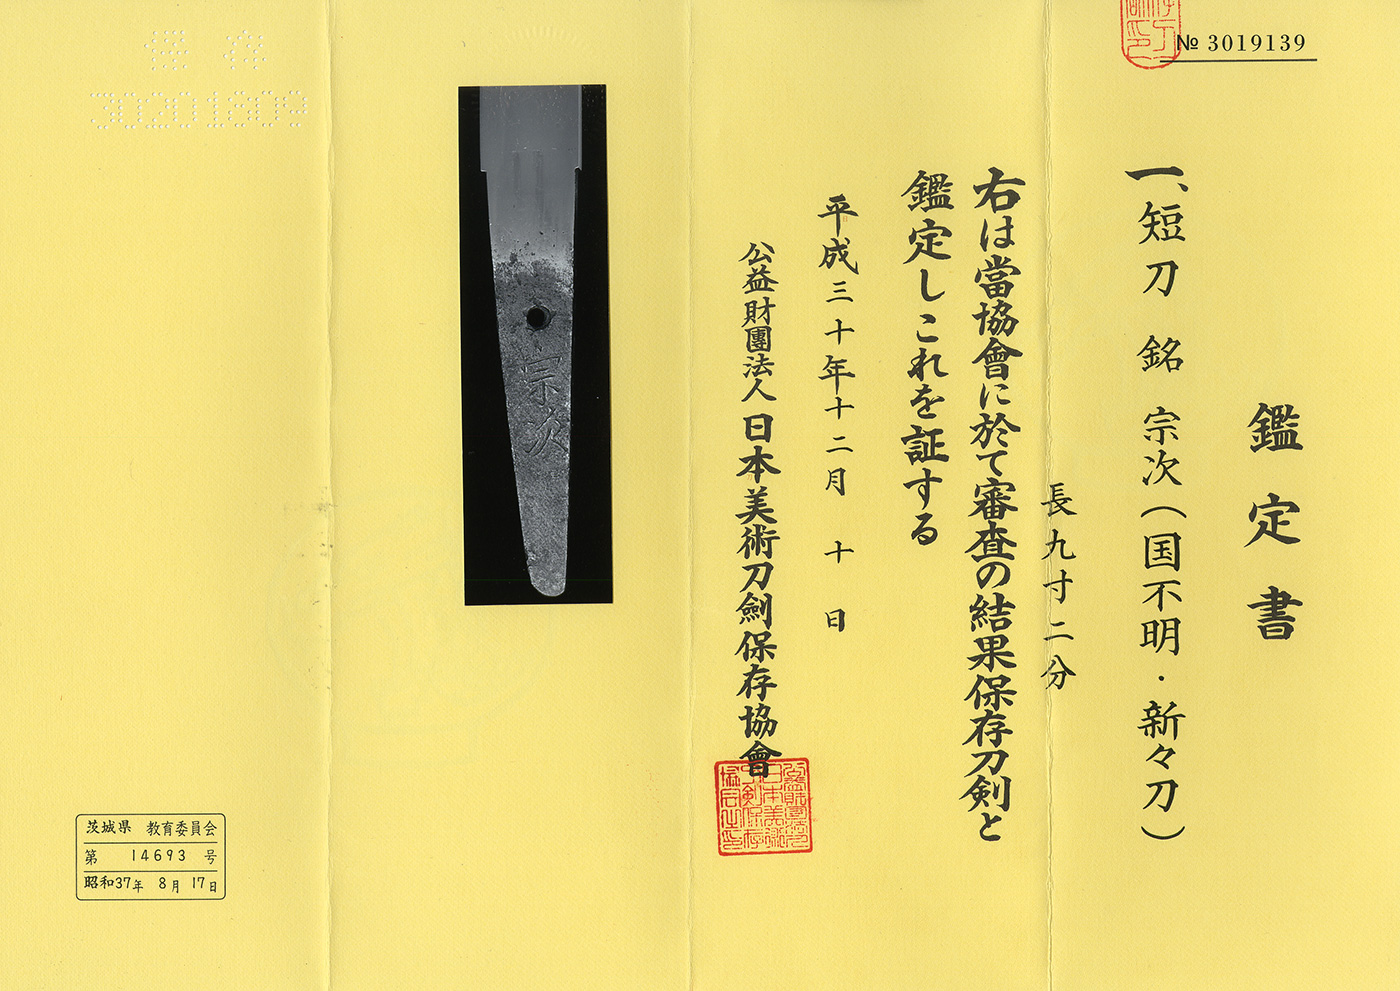 № 3019139
鑑定書
一、短刀 銘 宗次(国不明・新々刀)
長九寸二分
右は當協會に於て審査の結果保存刀剣と
鑑定しこれを証する
平成三十年十二月 十 日
公益財團法人 日本美術刀劍保存協會
宗次
保存
30201809
茨城県 教育委員会
第 14693 号
昭和37年 8月 17日